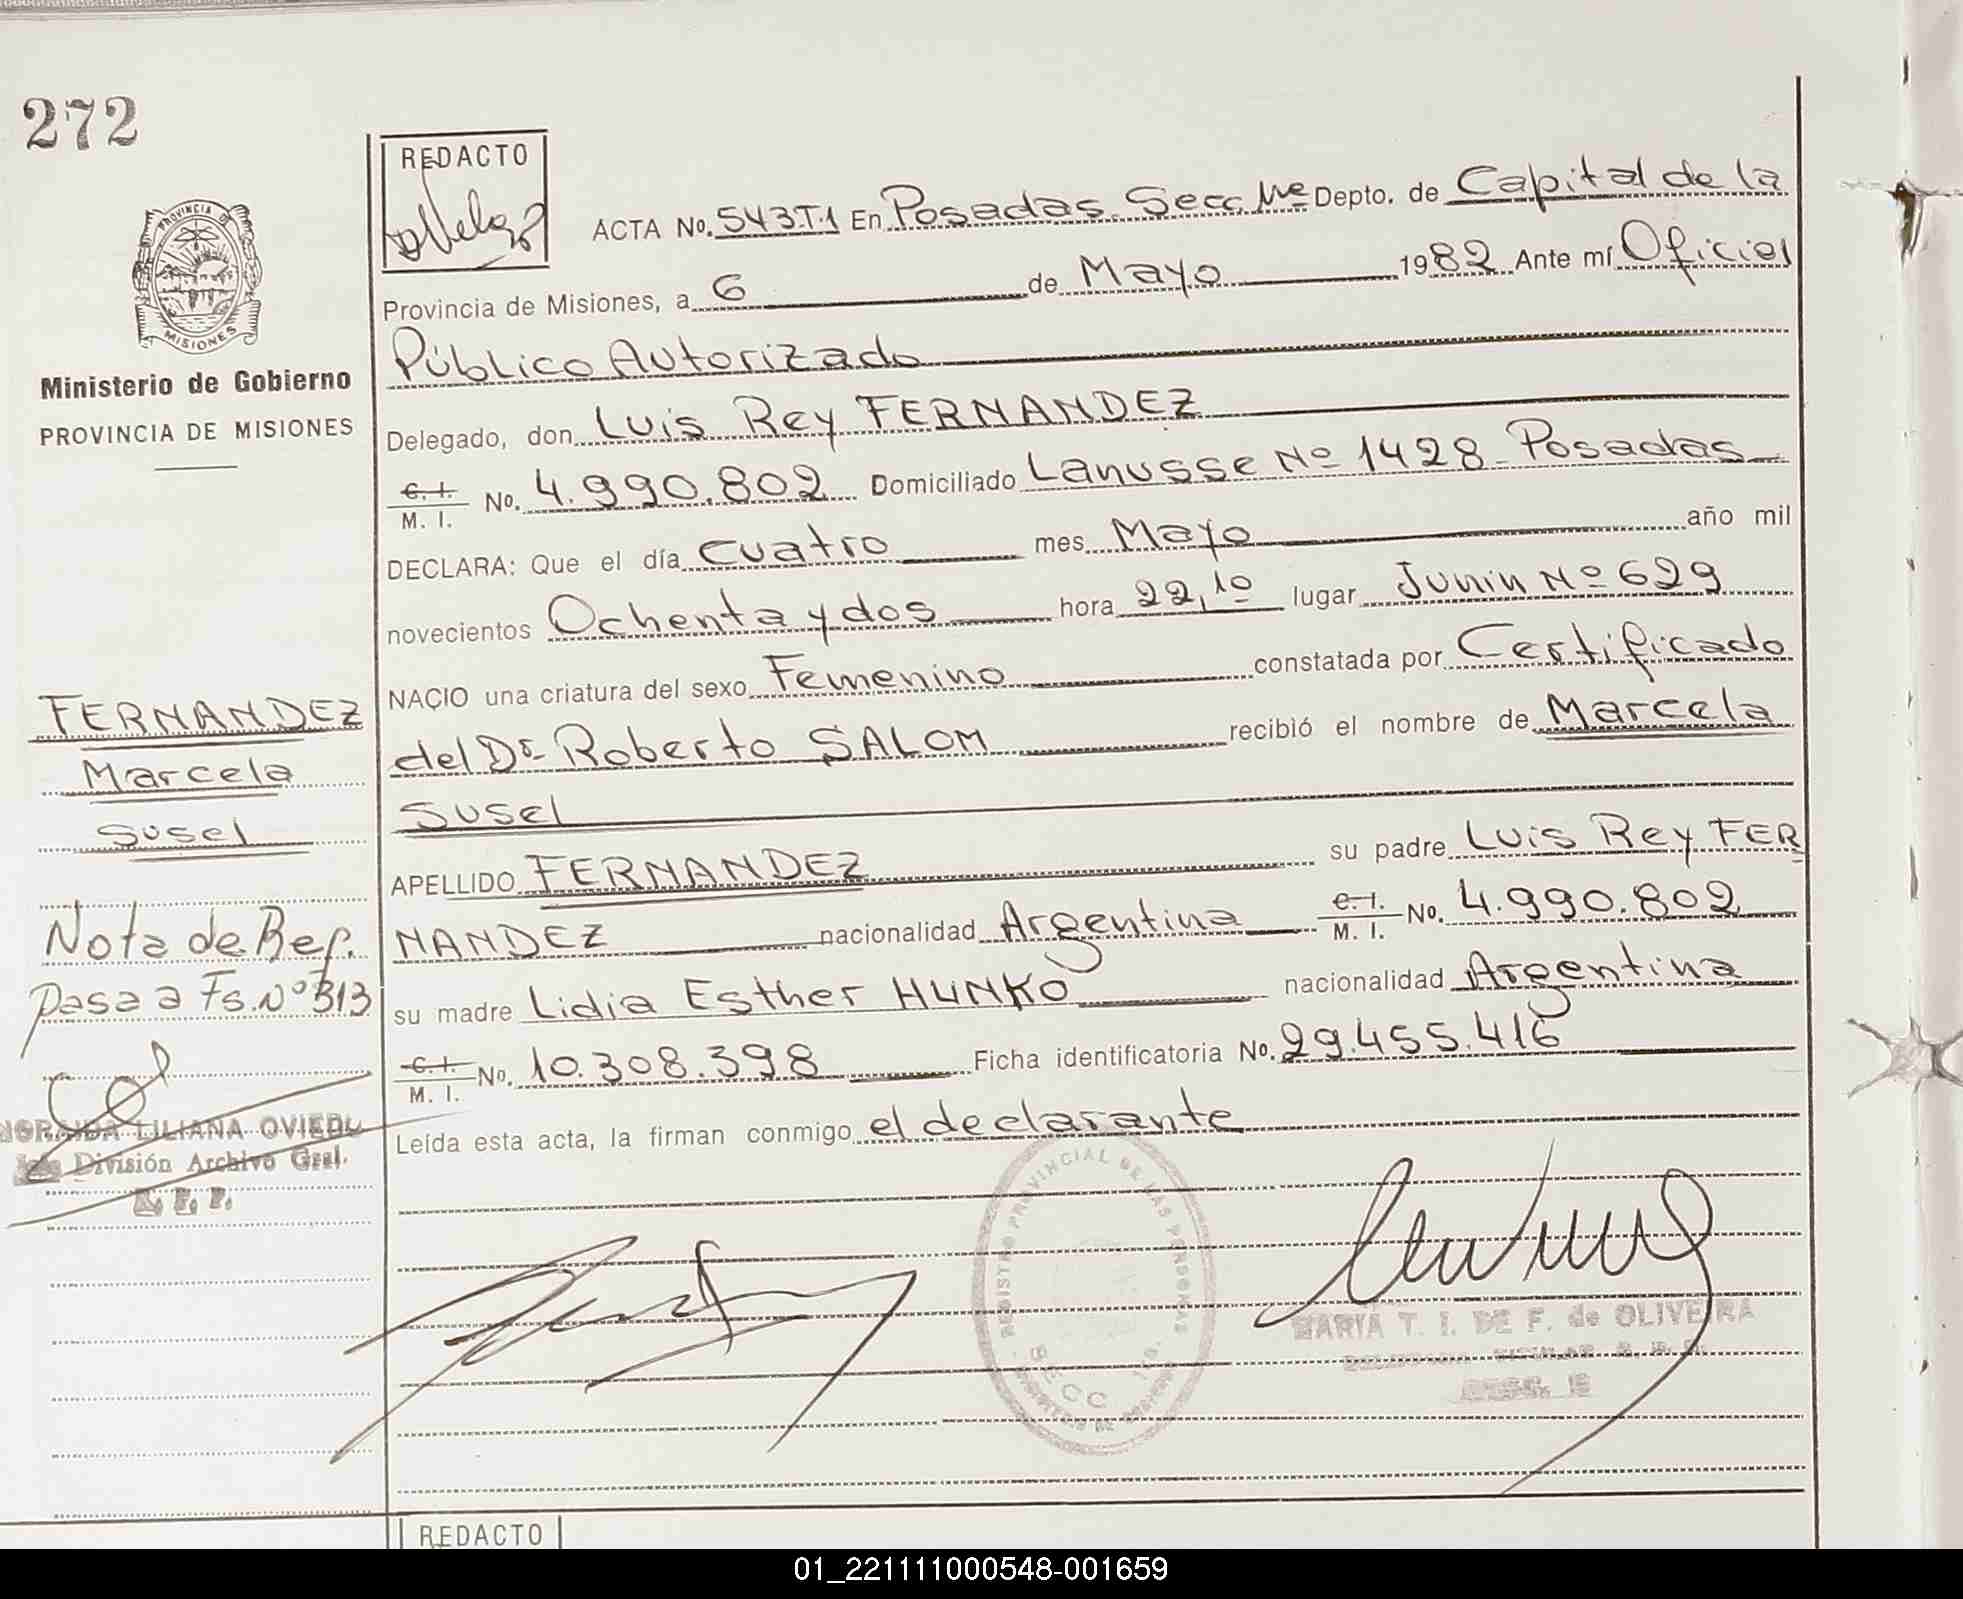 272
REDACTO
ACTA No. 543T.1 En Posadas Secc. Depto. de Capital de la
Provincia de Misiones, a 6 de Mayo 1982 Ante mí Oficial
Público Autorizado
Delegado, don Luis Rey FERNANDEZ
C. I. M. I. No. 4.990.802 Domiciliado Lanusse Nº 1428 - Posadas
DECLARA: Que el día cuatro mes Mayo año mil
novecientos Ochenta y dos hora 22,10 lugar Junin Nº 629
NACIO una criatura del sexo Femenino constatada por Certificado
del Dr. Roberto SALOM recibió el nombre de Marcela
Susel
APELLIDO FERNANDEZ su padre Luis Rey FER
NANDEZ nacionalidad Argentina C. I. M. I. No. 4.990.802
su madre Lidia Esther HUNKO nacionalidad Argentina
C. I. M. I. No. 10.308.398 Ficha identificatoria No. 29.455.416
Leída esta acta, la firman conmigo el declarante
PROVINCIA DE
MISIONES
Ministerio de Gobierno
PROVINCIA DE MISIONES
FERNANDEZ
Marcela
Susel
Nota de Ref.
pasa a Fs. Nº 313
LILIANA OVIEDO
División Archivo Gral.
REGISTRO PROVINCIAL DE LAS PERSONAS
SECC
MARIA T. I. DE F. de OLIVEIRA
REDACTO
01_221111000548-001659